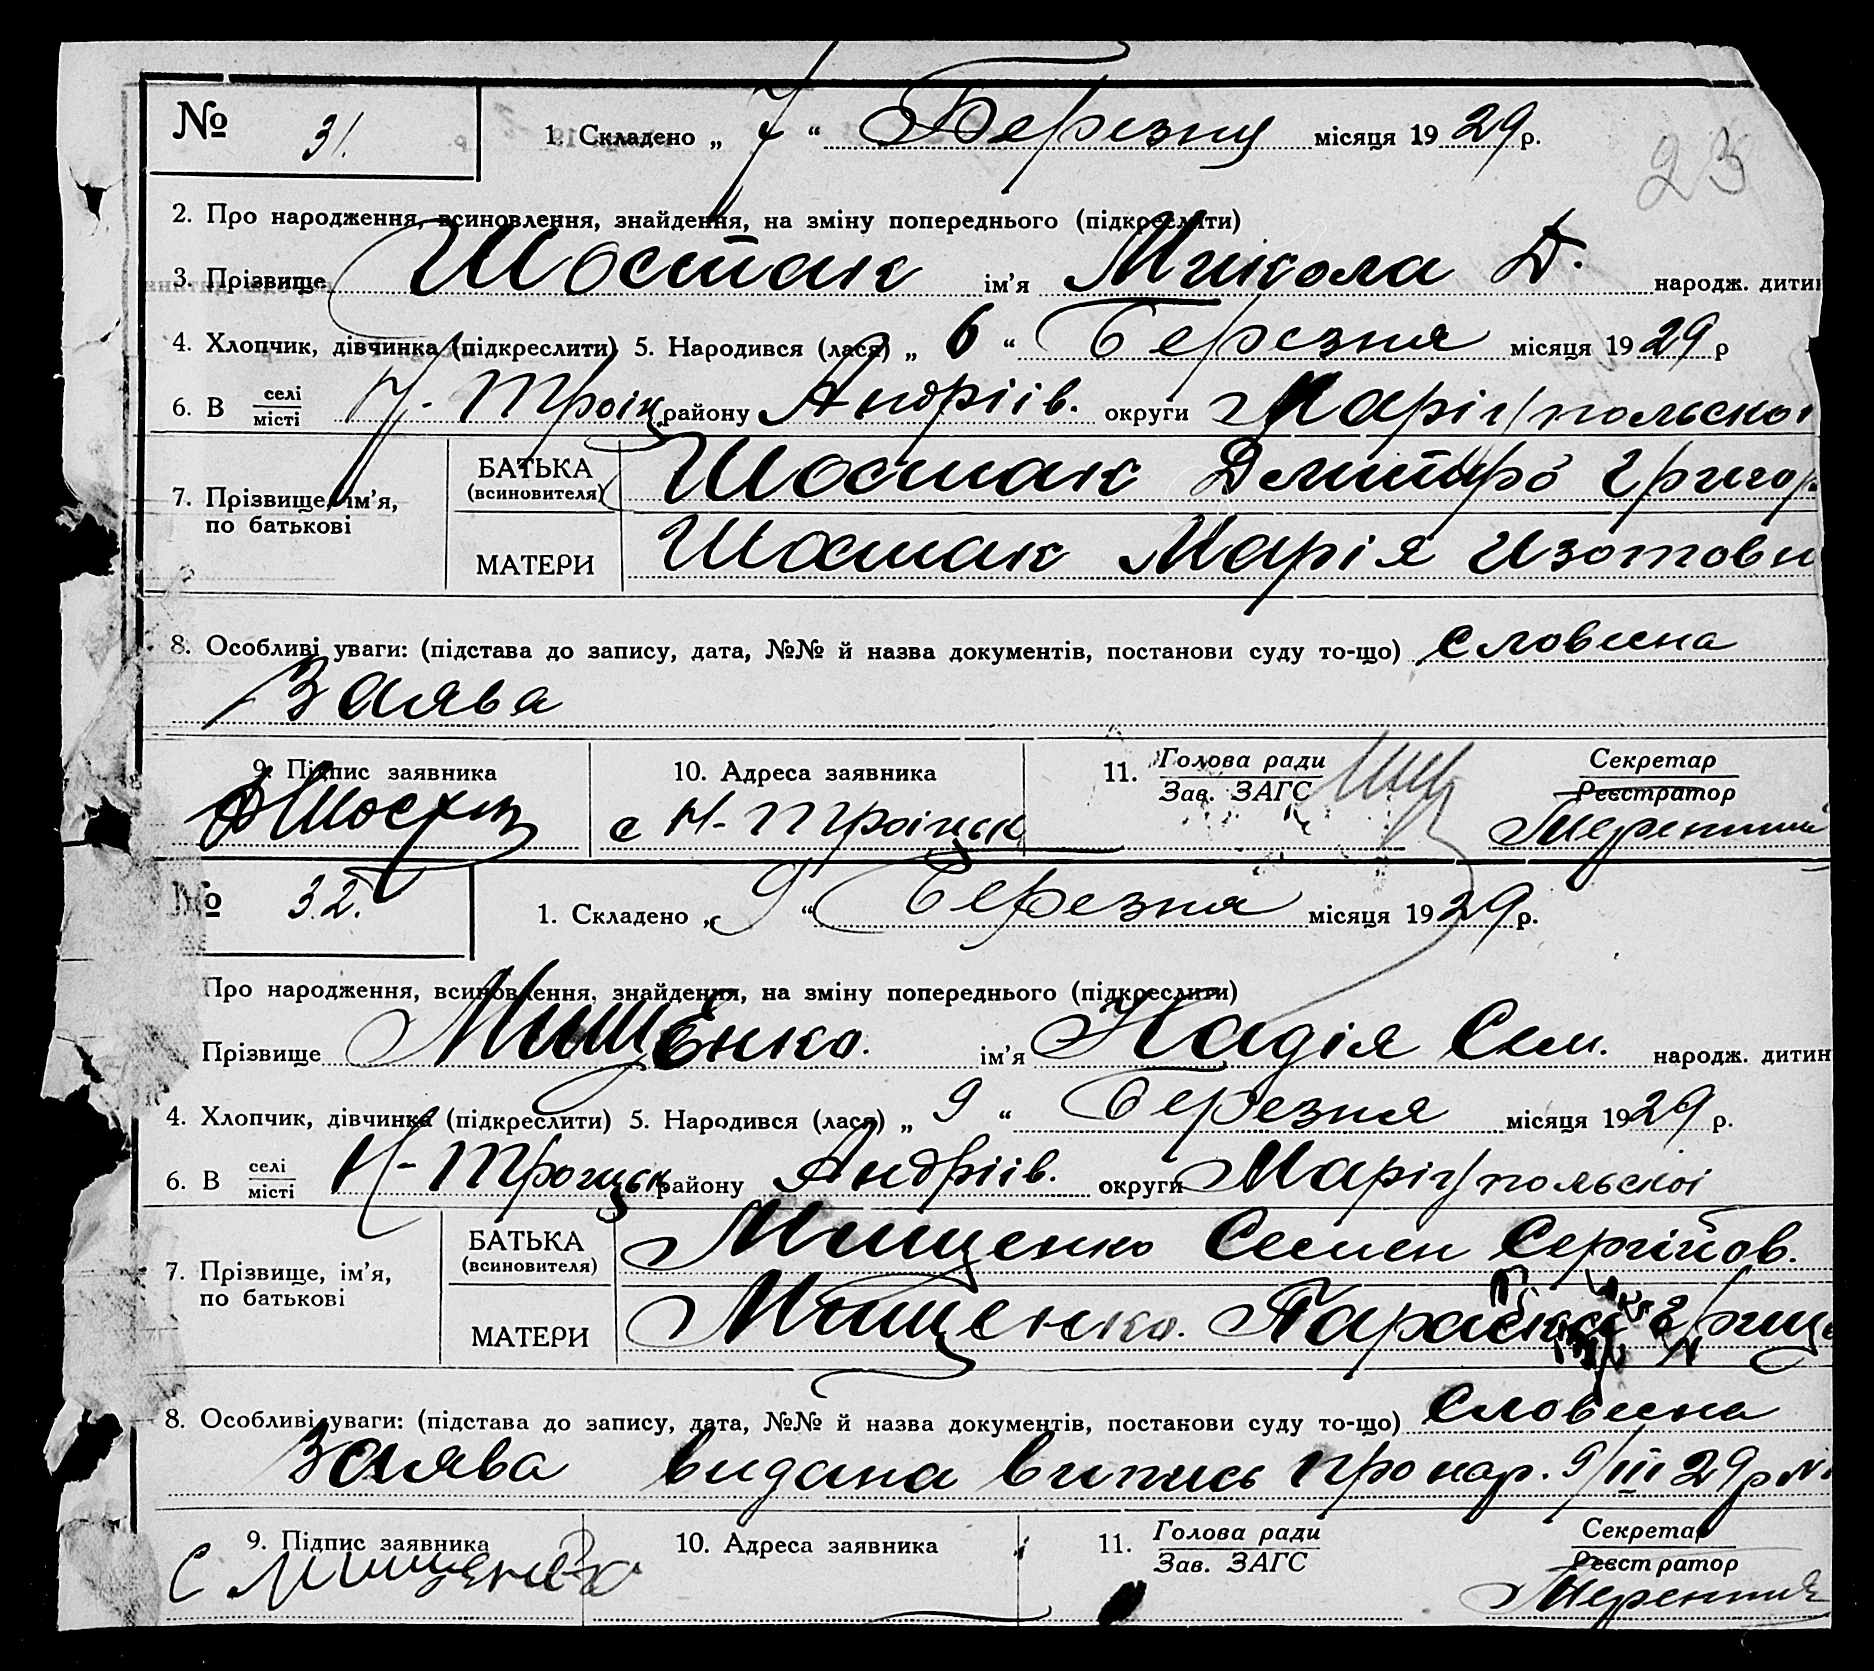 23
№ 31. 1. Складено „ 7 “ Березня місяця 1929 р.
2. Про народження, всиновлення, знайдення, на зміну попереднього (підкреслити)
3. Прізвище Шостак ім’я Микола Д. народж. дитин
4. Хлопчик, дівчинка (підкреслити) 5. Народився (лася) „ 6 “ Березня місяця 1929 р
6. В селі місті Н-Троіц району Андріів. округи Маріупольскоі
7. Прізвище, ім’я, по батькові БАТЬКА (всиновителя) Шостак Дмитро Григор
МАТЕРИ Шостак Марія Изотовн
8. Особливі уваги: (підстава до запису, дата, №№ й назва документів, постанови суду то-що) словесна
Заява
9. Підпис заявника 10. Адреса заявника 11. Голова ради Зав. ЗАГС Секретар Реєстратор
с Н-Троіцьк
№ 32. 1. Складено „ 9 “ Березня місяця 1929 р.
Про народження, всиновлення, знайдення, на зміну попереднього (підкреслити)
Прізвище Мищенко. ім’я Надія Сем. народж. дитин
4. Хлопчик, дівчинка (підкреслити) 5. Народився (лася) „ 9 “ Березня місяця 1929 р.
6. В селі місті Н-Троицьк району Андріів. округи Маріупольскоі
7. Прізвище, ім’я, по батькові БАТЬКА (всиновителя) Мищенко Семен Сергійов.
МАТЕРИ Мищенко.
8. Особливі уваги: (підстава до запису, дата, №№ й назва документів, постанови суду то-що) Словесна
Заява видана выпись про нар. 9/III 29 р №
9. Підпис заявника 10. Адреса заявника 11. Голова ради Зав. ЗАГС Секретар Реєстратор
С Мищенко